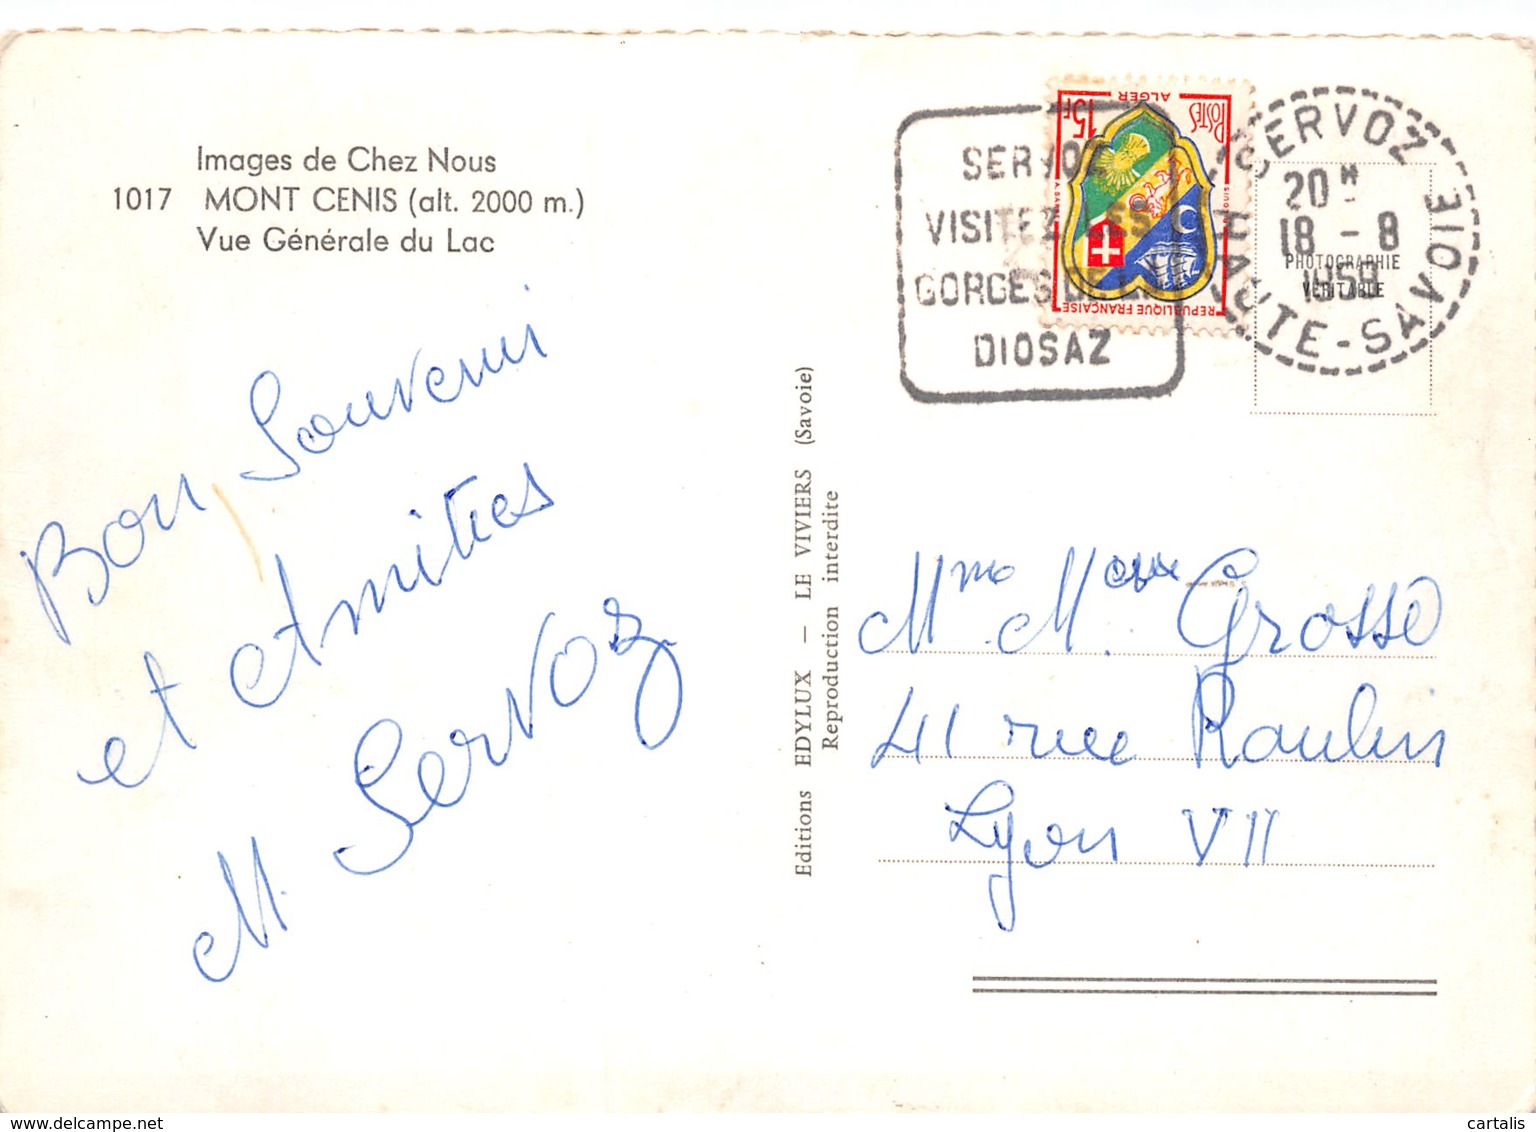 Images de Chez Nous
1017 MONT CENIS (alt. 2000 m.)
Vue Générale du Lac
Bon Souvenir
et Amitiés
M. Servoz
Editions EDYLUX — LE VIVIERS (Savoie)
Reproduction interdite
SERVOZ
VISITEZ LES
GORGES DE LA
DIOSAZ
POSTES
15F
ALGER
REPUBLIQUE FRANÇAISE
SERVOZ
20H
18 - 8
HAUTE-SAVOIE
PHOTOGRAPHIE
VÉRITABLE
Mme Grosso
41 rue Raulin
Lyon VII
cartalis